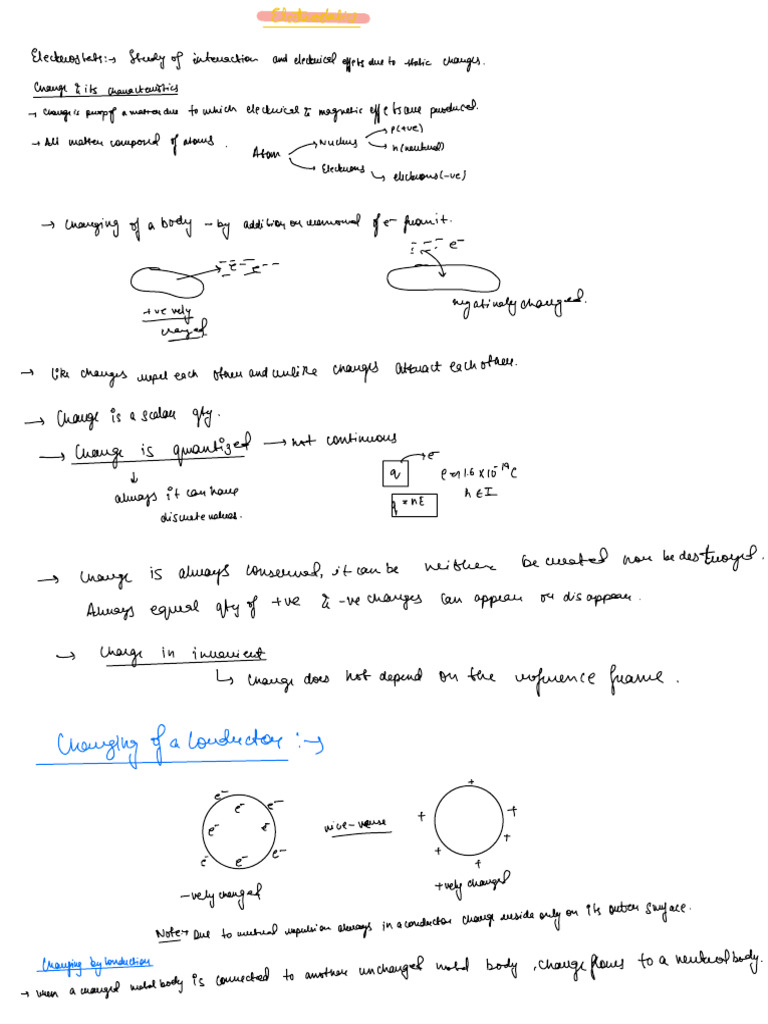 Electrostatics
Electrostats:→ Study of interaction and electrical effets due to static charges.
Charge & its characteristics
→ Charge is prop of a matter due to which electrical & magnetic effets are produced.
→ All matter composed of atoms. Atom
Nucleus
p(+ve)
n(neutral)
Electrons
electrons(-ve)
→ Charging of a body – by addition or removal of e⁻ from it.
e⁻ e⁻
e⁻
+vevely
charged
negatively charged.
→ like charges repel each other and unlike charges attract each other.
→ Charge is a scalar qty.
→ Charge is quantized → not continuous
always it can have
discrete values.
q
e⁻
e = 1.6 × 10⁻¹⁹ C
n ∈ I
q = nE
→ Charge is always conserved, it can be neither be created nor be destroyed.
Always equal qty of +ve & -ve charges can appear or disappear.
→ Charge in invarient
↳ Charge does not depend on the refrence frame.
Charging of a conductor :→
e⁻ e⁻ e⁻ e⁻ e⁻ e⁻ e⁻ e⁻
vice-verse
+ + + + + + +
-vely charged
+vely charged
Note:→ Due to mutual repulsion always in a conductor charge reside only on its outer surface.
Charging by conduction
→ when a charged metal body is connected to another uncharged metal body, charge flows to a neutral body.